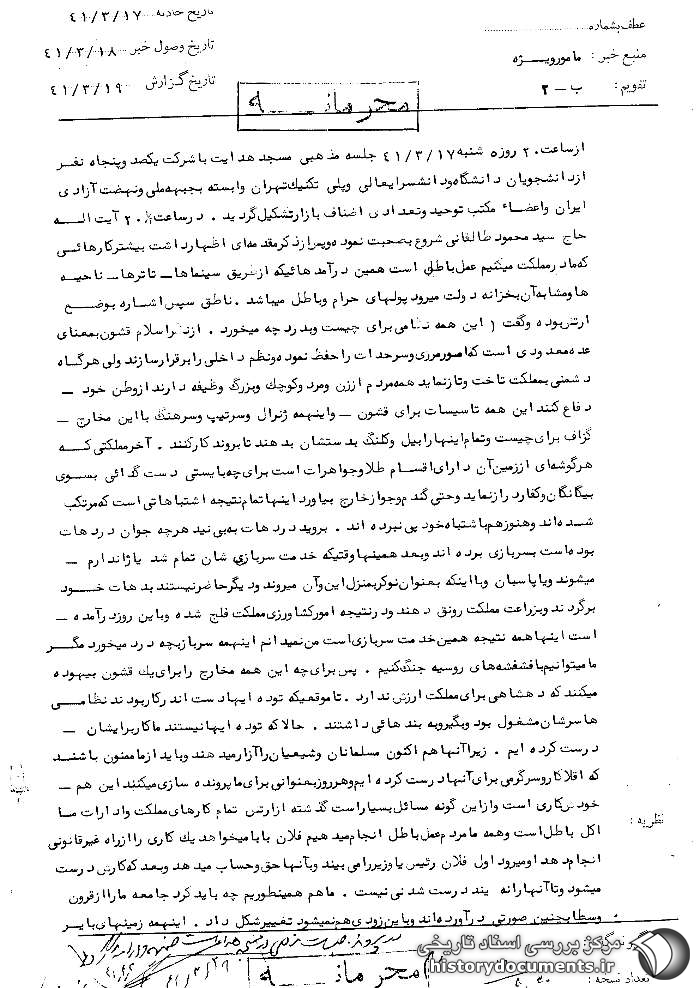 تاریخ حادثه ۴۱/۳/۱۷
تاریخ وصول خبر ۴۱/۳/۱۸
تاریخ گزارش ۴۱/۳/۱۹
عطف بشماره
منبع خبر : مامورویــژه
تقویم : ب – ۲
محرمانـــه
ازساعت ۲۰ روزه شنبه ۴۱/۳/۱۷ جلسه مذهبی مسجد هدایت باشرکت یکصد وپنجاه نفر
ازدانشجویان دانشگاه ودانشسرایعالی وپلی تکنیك تهران وابسته بجبهه ملی ونهضت آزادی
ایران واعضاء مکتب توحید وتعدادی اصناف بازارتشکیل گردید . درساعت ۲۰/۵ آیت الــه
حاج سید محمود طالقانی شروع بصحبت نموده وپس ازذکرمقدمه ای اظهارداشت بیشترکارهائــی
که مادرمملکت میکنیم عمل باطلی است همین درآمدهائیکه ازطریق سینماهاــ تاترهاــ ناحیــه
هاومشابه آن بخزانه دولت میرود پولهای حرام وباطل میباشد . ناطق سپس اشاره بوضــع
ارتش بوده وگفت ( این همه نظامی برای چیست وبدرد چه میخورد . ازنظراسلام قشون بمعنای
عده معدودی است که امورمرزی وسرحدات راحفظ نموده ونظم داخلی رابرقرارسازند ولی هرگاه
دشمنی بمملکت تاخت وتازنماید همه مردم اززن ومرد وکوچك وبزرگ وظیفه دارند ازوطن خود ــ
دفاع کنند این همه تاسیسات برای قشون ــ واینهمه ژنرال وسرتیپ وسرهنگ بااین مخارج ــ
گزاف برای چیست وتمام اینهارابیل وکلنگ بدستشان بدهند تابروند کارکنند . آخرمملکتی کــه
هرگوشه ای اززمین آن دارای اقسام طلاوجواهرات است برای چه بایستی دست گدائی بسـوی
بیگانگان وکفاردرازنماید وحتی گندم وجوازخارج بیاورد اینهاتمام نتیجه اشتباهاتی است که مرتکب
شــده اند وهنوزهم باشتباه خود پی نبرده اند . بروید دردهات به بینید هرچه جوان دردهات
بوده است بسربازی برده اند وبعد همینهاوقتیکه خدمت سربازی شان تمام شد یاژاندارم ــ
میشوند ویاپاسبان ویااینکه بعنوان نوکربمنزل این وآن میروند ودیگرحاضرنیستند بدهات خــود
برگردند وبزراعت مملکت رونق دهند ودرنتیجه امورکشاورزی مملکت فلج شده وباین روزدرآمده ــ
است اینهاهمه نتیجه همین خدمت سربازی است من نمیدانم اینهمه سربازبچه درد میخورد مگــر
مامیتوانیم بافشفشه های روسیه جنگ کنیم . پس برای چه این همه مخارج رابرای یك قشون بیهوده
میکنند که دهشاهی برای مملکت ارزش ندارد . تاموقعیکه توده ایهادست اندرکاربودند نظامــی
هاسرشان مشغول بود وبگیروبه بندهائی داشتند . حالاکه توده ایهانیستند ماکاربرایشان ــ
درست کرده ایم . زیراآنهاهم اکنون مسلمانان وشیعیان راآزارمیدهند وبایدازماممنون باشنــد
که اقلاکاروسرگرمی برای آنهادرست کرده ایم وهرروزبعنوانی برای ماپرونده سازی میکنند این هم ــ
خودش کاری است وازاین گونه مسائل بسیاراست گذشته ازارتش تمام کارهای مملکت وادارات مــا
اکل باطل است وهمه مامردم عمل باطل انجام میدهیم فلان بابامیخواهد یك کاری راازراه غیرقانونی
انجام دهد اومیرود اول فلان رئیس یاوزیررامی بیند وبآنهاحق وحساب میدهد وبعد که کارش درست
میشود وتاآنهارانه بیند درست شدنی نیست . ماهم همینطوریم چه باید کرد جامعه ماراازقرون
وسطابچنین صورتی درآورده اند وباین زودی هم نمیشود تغییرشکل داد . اینهمه زمینهای بایر
نظریه :
محرمانـــه
تعداد نسخه :
مرکز بررسی اسناد تاریخی
historydocuments.ir